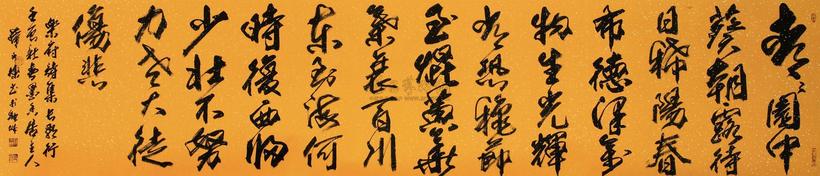 青々園中
葵朝露待
日晞陽春
布德澤萬
物生光輝
常恐穐節
至焜黄華
葉衰百川
東到海何
時復西歸
少壯不努
力老大徒
傷悲
樂府詩集長歌行
主人